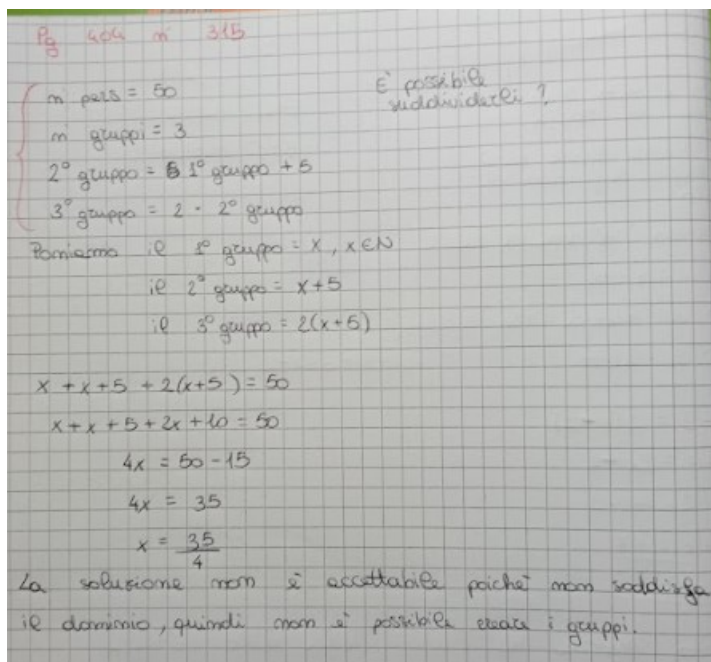 Pg 404 n° 315
n° pers = 50
E' possibile
suddividerli ?
n° gruppi = 3
2° gruppo = 1° gruppo + 5
3° gruppo = 2 · 2° gruppo
Poniamo il 1° gruppo = x, x ∈ N
il 2° gruppo = x + 5
il 3° gruppo = 2(x+5)
x + x + 5 + 2(x+5) = 50
x + x + 5 + 2x + 10 = 50
4x = 50 - 15
4x = 35
x = 35/4
La soluzione non è accettabile poiché non soddisfa
il dominio, quindi non è possibile creare i gruppi.